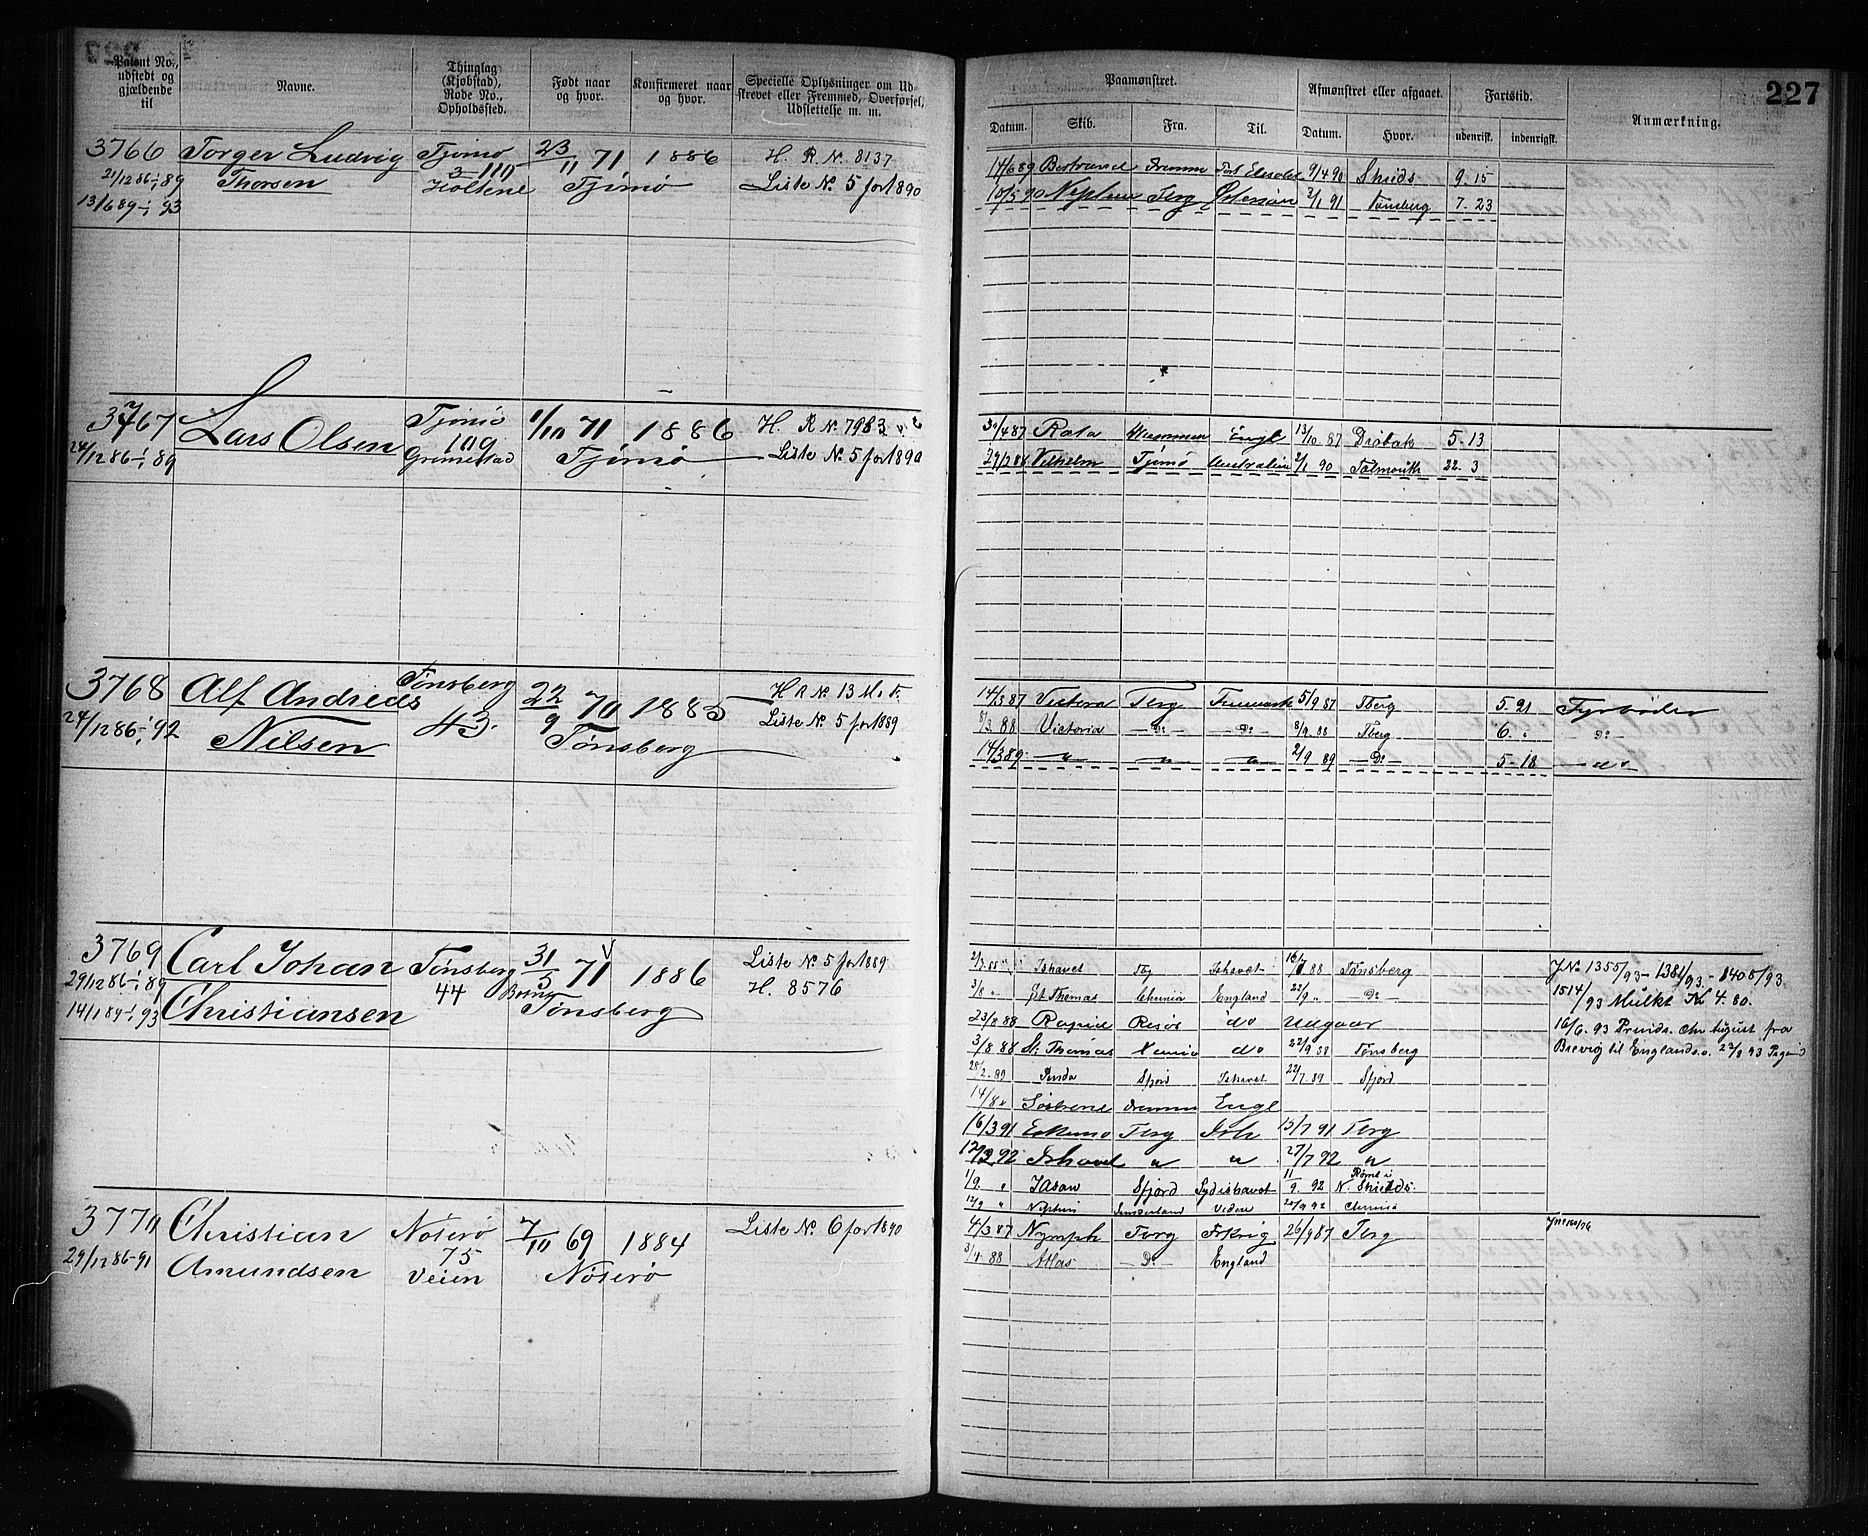 227
Patent No., udstedt og gjældende til
Navne.
Thinglag (Kjøbstad), Rode No., Opholdssted.
Født naar og hvor.
Konfirmeret naar og hvor.
Specielle Oplysninger om Udskrevet eller Fremmed, Overførsel, Udslettelse m. m.
Paamønstret.
Afmønstret eller afgaaet.
Fartstid.
Anmærkning.
Datum. Skib. Fra. Til. Datum. Hvor. udenrigsk. indenrigsk.
3766 Torger Ludvig Tjømø 23/11 71 1886 H. R. No. 8137
21/12 86-1/1 89 Thorsen 3 110 Holtene Tjømø Liste No. 5 for 1890
13/6 89-1/1 93
14/6 89 Dramm 9/4 90 Shields 9.15
10/5 90 Neptun Tbrg 2/1 91 Tønsberg 7.23
3767 Lars Olsen Tjømø 1/10 71 1886 H. R No 7983
24/12 86-1/1 89 109 Grimestad Tjømø Liste No. 5 for 1890
30/4 87 Rota Engl 13/10 87 Drøbak 5.13
Vilhelm Tjømø Australien 2/1 90 Falmouth 22.3
3768 Alf Andreas Tønsberg 22/9 70 1885 H R No 13
24/12 86-1/1 92 Nilsen 43. Tønsberg Liste No. 5 for 1889
14/3 87 Victoria Tbrg Finmark 5/9 87 Tberg 5.21 Fyrbøder
8/3 88 Victoria Do Do 8/9 88 Tberg 6. Do
14/3 89 " " " 2/9 89 Do 5-18 do
3769 Carl Johan Tønsberg 31/5 71 1886 Liste No. 5 for 1889
29/12 86-1/1 89 44 Tønsberg H. 8576
14/1 89-1/1 93 Christiansen
Ishavet Ishavet 88 Tønsberg J No 1355/93-1381/93-1408/93
3/8 " St Thomas Chrnia England 22/9 " Do 1514/93 Mulkt No 4.80.
23/8 88 Rapid Risør do Udgaar 16/6.93 fra
3/8 88 St Thomas Xania do 22/9 88 Tønsberg Brevig til England
28/2.89 Sfjord Ishavet 22/7.89 Sfjord
14/8 " Søstrene Dramm Engl
16/3 91 Eskimo Tbrg Ish 15/7 91 Tbrg
12/3 92 Ishavet " " 27/7 92 "
1/9. " Jason Sfjord Sydishavet 11/9. 92 Rømt i N. Shields.
12/9 " Neptun Sunderland 20/9 92 Chrnia
3770 Christian Nøterø 7/10 69 1884 Liste No. 6 for 1890
29/12 86-91 Amundsen 75 Veien Nøterø
4/3 87 Nymph Tbrg 26/9 87 Tbrg
3/4 88 Atlas Do England